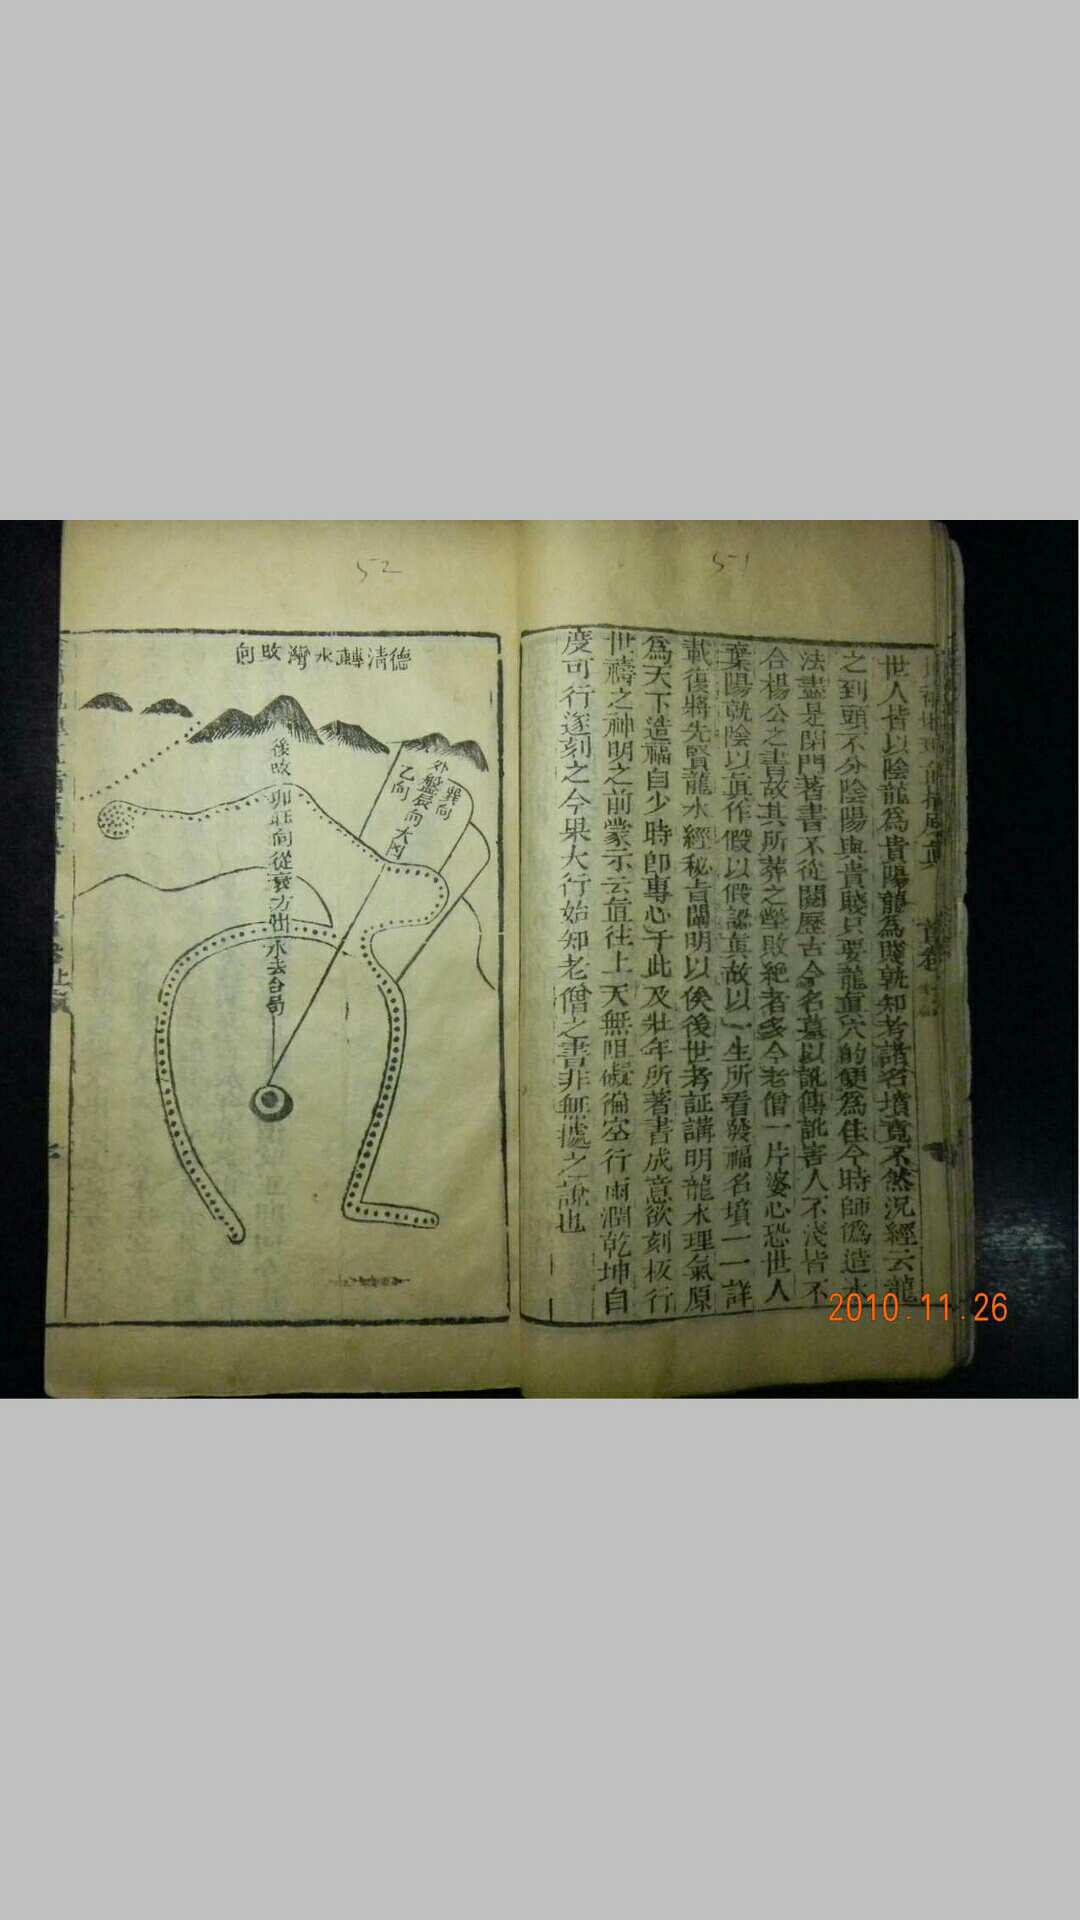 51
世人皆以陰龍為貴陽龍為賤孰知考諸名墳竟不然況經云龍
之到頭不分陰陽與貴賤只要龍眞穴的便為佳今時師僞造水
法盡是閉門著書不從閱歷古今名墓以訛傳訛害人不淺皆不
合楊公之書故其所葬之塋敗絕者多今老僧一片婆心恐世人
棄陽就陰以眞作假以假認眞故以一生所看發福名墳一一詳
載復將先賢龍水經秘旨闡明以俟後世考証講明龍水理氣原
為天下造福自少時卽專心于此及壯年所著書成意欲刻板行
世禱之神明之前蒙示云直往上天無阻礙徧空行雨潤乾坤自
度可行遂刻之今果大行始知老僧之書非無據之說也
首卷
52
德清轉水灣改向
巽向
外盤辰向大凶
乙向
後改
卯向從方出水去合局
2010.11.26